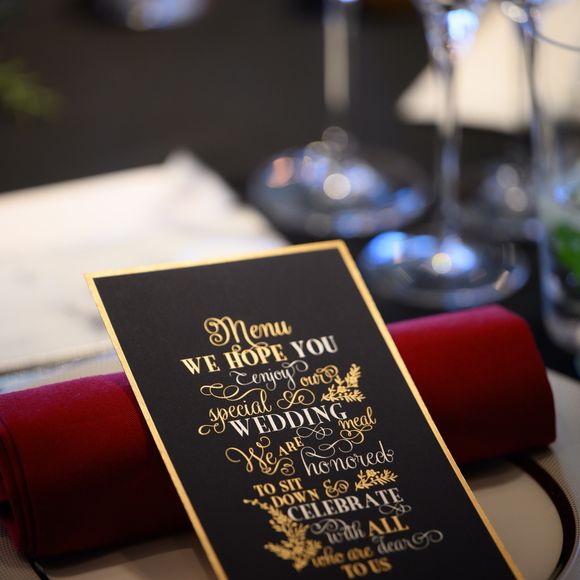 Menu
WE HOPE YOU
enjoy our
special
WEDDING meal
We ARE
honored
TO SIT
DOWN & 
CELEBRATE
with ALL
who are dear
TO US